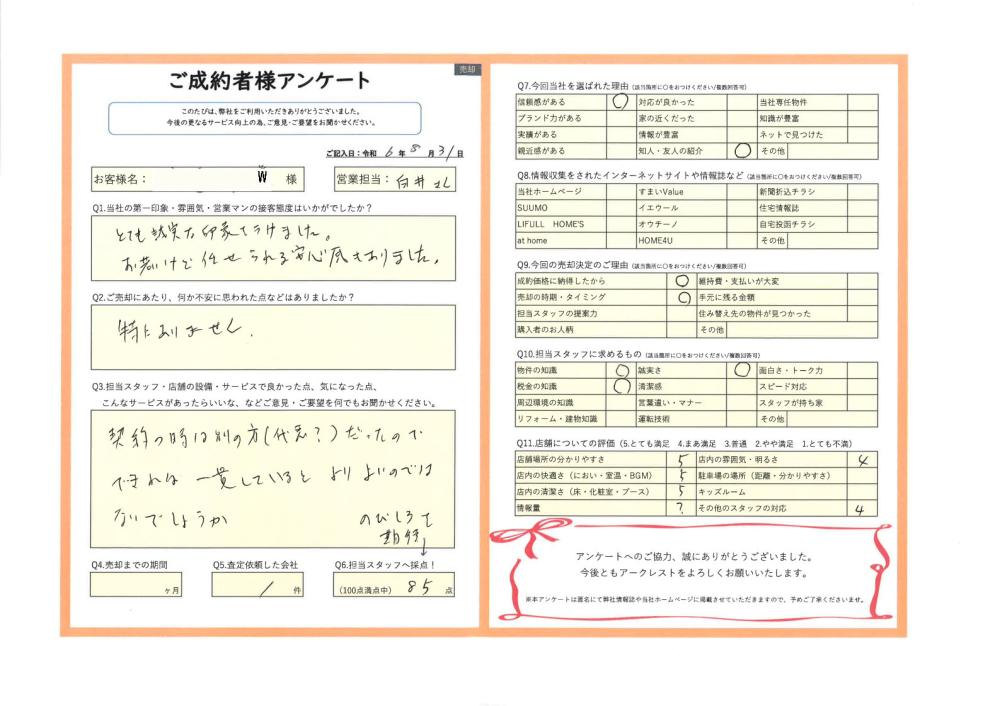 売却
ご成約者様アンケート
このたびは、弊社をご利用いただきありがとうございました。
今後の更なるサービス向上の為、ご意見・ご要望をお聞かせください。
ご記入日：令和 6 年 8 月 31 日
お客様名： W 様
営業担当：白井さん
Q1.当社の第一印象・雰囲気・営業マンの接客態度はいかがでしたか？
とても誠実な印象をうけました。
お若いけど任せられる安心感もありました。
Q2.ご売却にあたり、何か不安に思われた点などはありましたか？
特にありません.
Q3.担当スタッフ・店舗の設備・サービスで良かった点、気になった点、
こんなサービスがあったらいいな、などご意見・ご要望を何でもお聞かせください。
契約の時は別の方(代表？)だったので
できれば 一貫していると よりよいのでは
ないでしょうか
のびしろを
期待↓
Q4.売却までの期間
ヶ月
Q5.査定依頼した会社
/ 件
Q6.担当スタッフへ採点！
(100点満点中) 85 点
Q7.今回当社を選ばれた理由 (該当箇所に○をおつけください/複数回答可)
信頼感がある ○ 対応が良かった 当社専任物件
ブランド力がある 家の近くだった 知識が豊富
実績がある 情報が豊富 ネットで見つけた
親近感がある 知人・友人の紹介 ○ その他
Q8.情報収集をされたインターネットサイトや情報誌など (該当箇所に○をおつけください/複数回答可)
当社ホームページ すまいValue 新聞折込チラシ
SUUMO イエウール 住宅情報誌
LIFULL HOME'S オウチーノ 自宅投函チラシ
at home HOME4U その他
Q9.今回の売却決定のご理由 (該当箇所に○をおつけください/複数回答可)
成約価格に納得したから ○ 維持費・支払いが大変
売却の時期・タイミング ○ 手元に残る金額
担当スタッフの提案力 住み替え先の物件が見つかった
購入者のお人柄 その他
Q10.担当スタッフに求めるもの (該当箇所に○をおつけください/複数回答可)
物件の知識 ○ 誠実さ ○ 面白さ・トーク力
税金の知識 ○ 清潔感 スピード対応
周辺環境の知識 言葉遣い・マナー スタッフが持ち家
リフォーム・建物知識 運転技術 その他
Q11.店舗についての評価 (5.とても満足 4.まあ満足 3.普通 2.やや満足 1.とても不満)
店舗場所の分かりやすさ 5 店内の雰囲気・明るさ 4
店内の快適さ (におい・室温・BGM) 5 駐車場の場所 (距離・分かりやすさ)
店内の清潔さ (床・化粧室・ブース) 5 キッズルーム
情報量 ? その他のスタッフの対応 4
アンケートへのご協力、誠にありがとうございました。
今後ともアークレストをよろしくお願いいたします。
※本アンケートは匿名にて弊社情報誌や当社ホームページに掲載させていただきますので、予めご了承くださいませ。